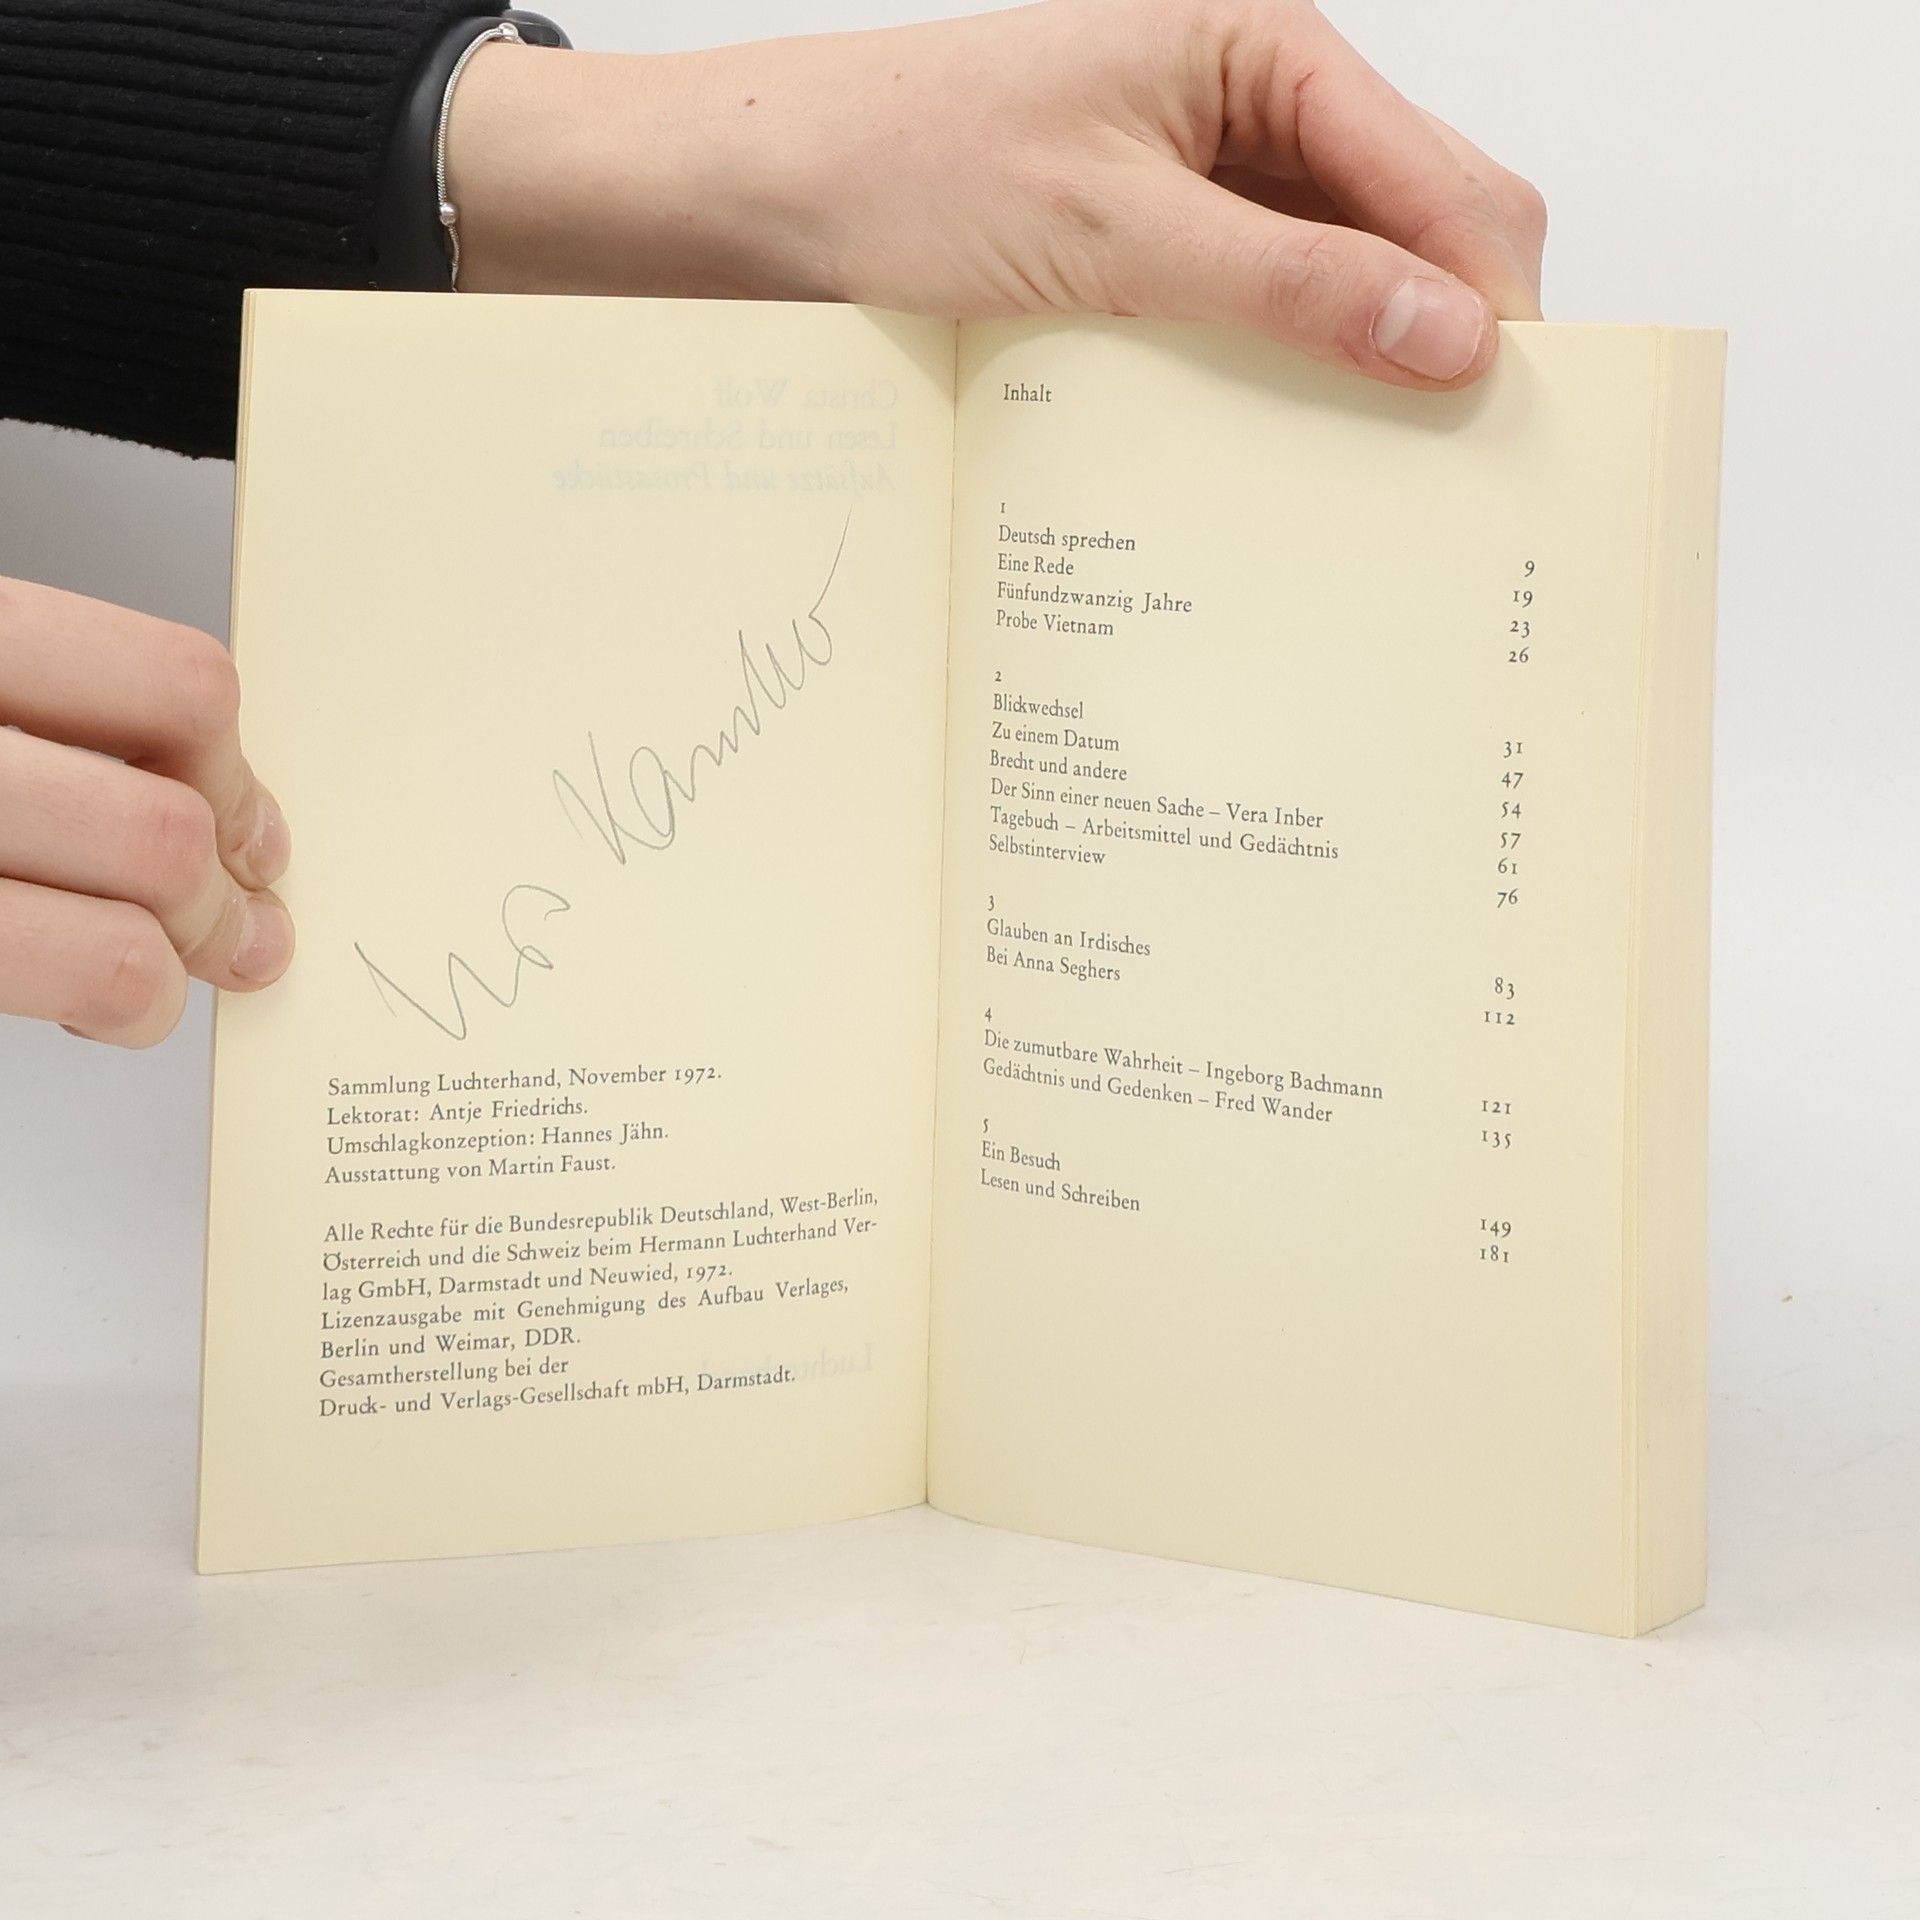 Sammlung Luchterhand, November 1972.
Lektorat: Antje Friedrichs.
Umschlagkonzeption: Hannes Jähn.
Ausstattung von Martin Faust.
Alle Rechte für die Bundesrepublik Deutschland, West-Berlin,
Österreich und die Schweiz beim Hermann Luchterhand Ver-
lag GmbH, Darmstadt und Neuwied, 1972.
Lizenzausgabe mit Genehmigung des Aufbau Verlages,
Berlin und Weimar, DDR.
Gesamtherstellung bei der
Druck- und Verlags-Gesellschaft mbH, Darmstadt.
Christa Wolf
Lesen und Schreiben
Aufsätze und Prosastücke
Inhalt
1
Deutsch sprechen 9
Eine Rede 19
Fünfundzwanzig Jahre 23
Probe Vietnam 26
2
Blickwechsel 31
Zu einem Datum 47
Brecht und andere 54
Der Sinn einer neuen Sache – Vera Inber 57
Tagebuch – Arbeitsmittel und Gedächtnis 61
Selbstinterview 76
3
Glauben an Irdisches 83
Bei Anna Seghers 112
4
Die zumutbare Wahrheit – Ingeborg Bachmann 121
Gedächtnis und Gedenken – Fred Wander 135
5
Ein Besuch 149
Lesen und Schreiben 181